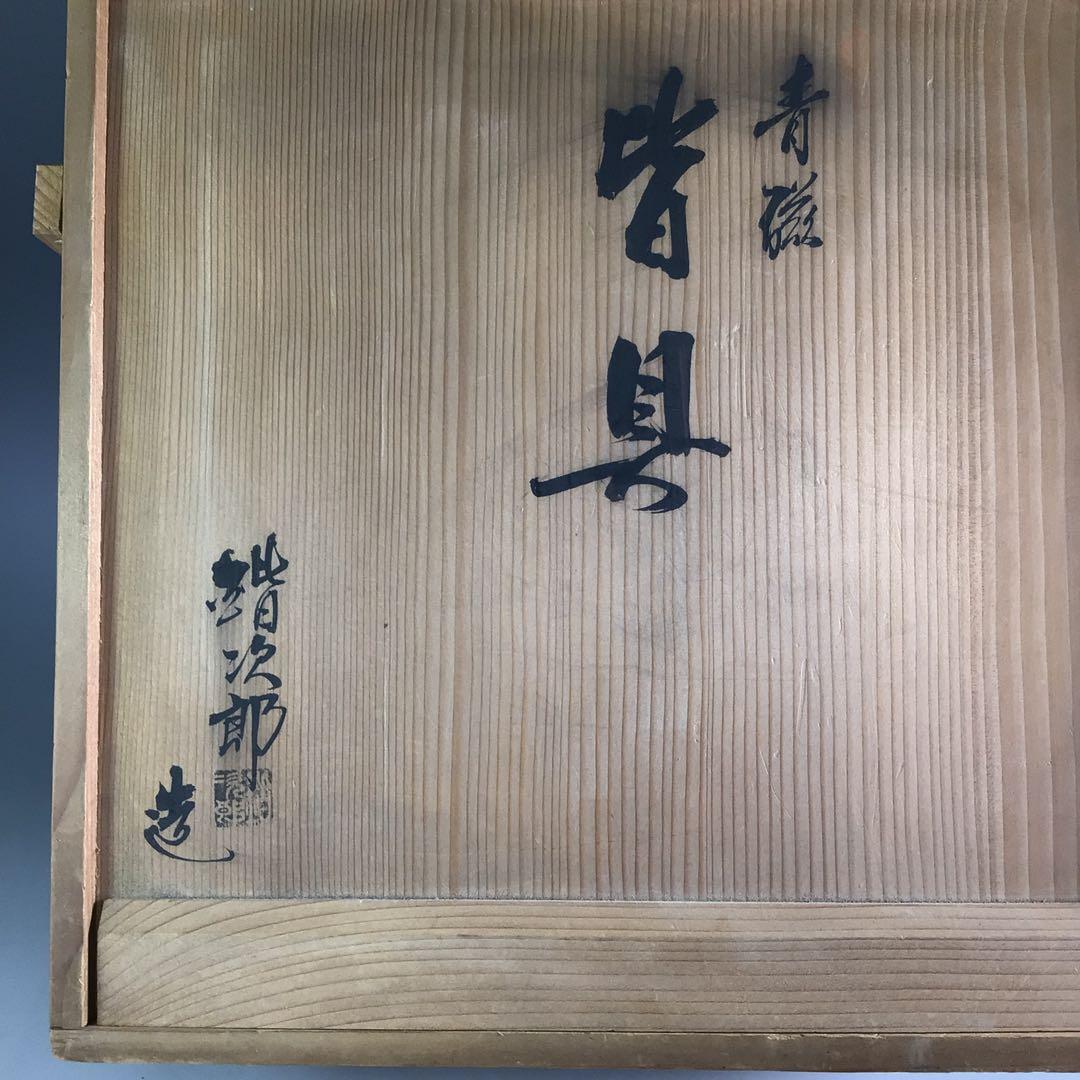 青磁
皆具
次郎
造